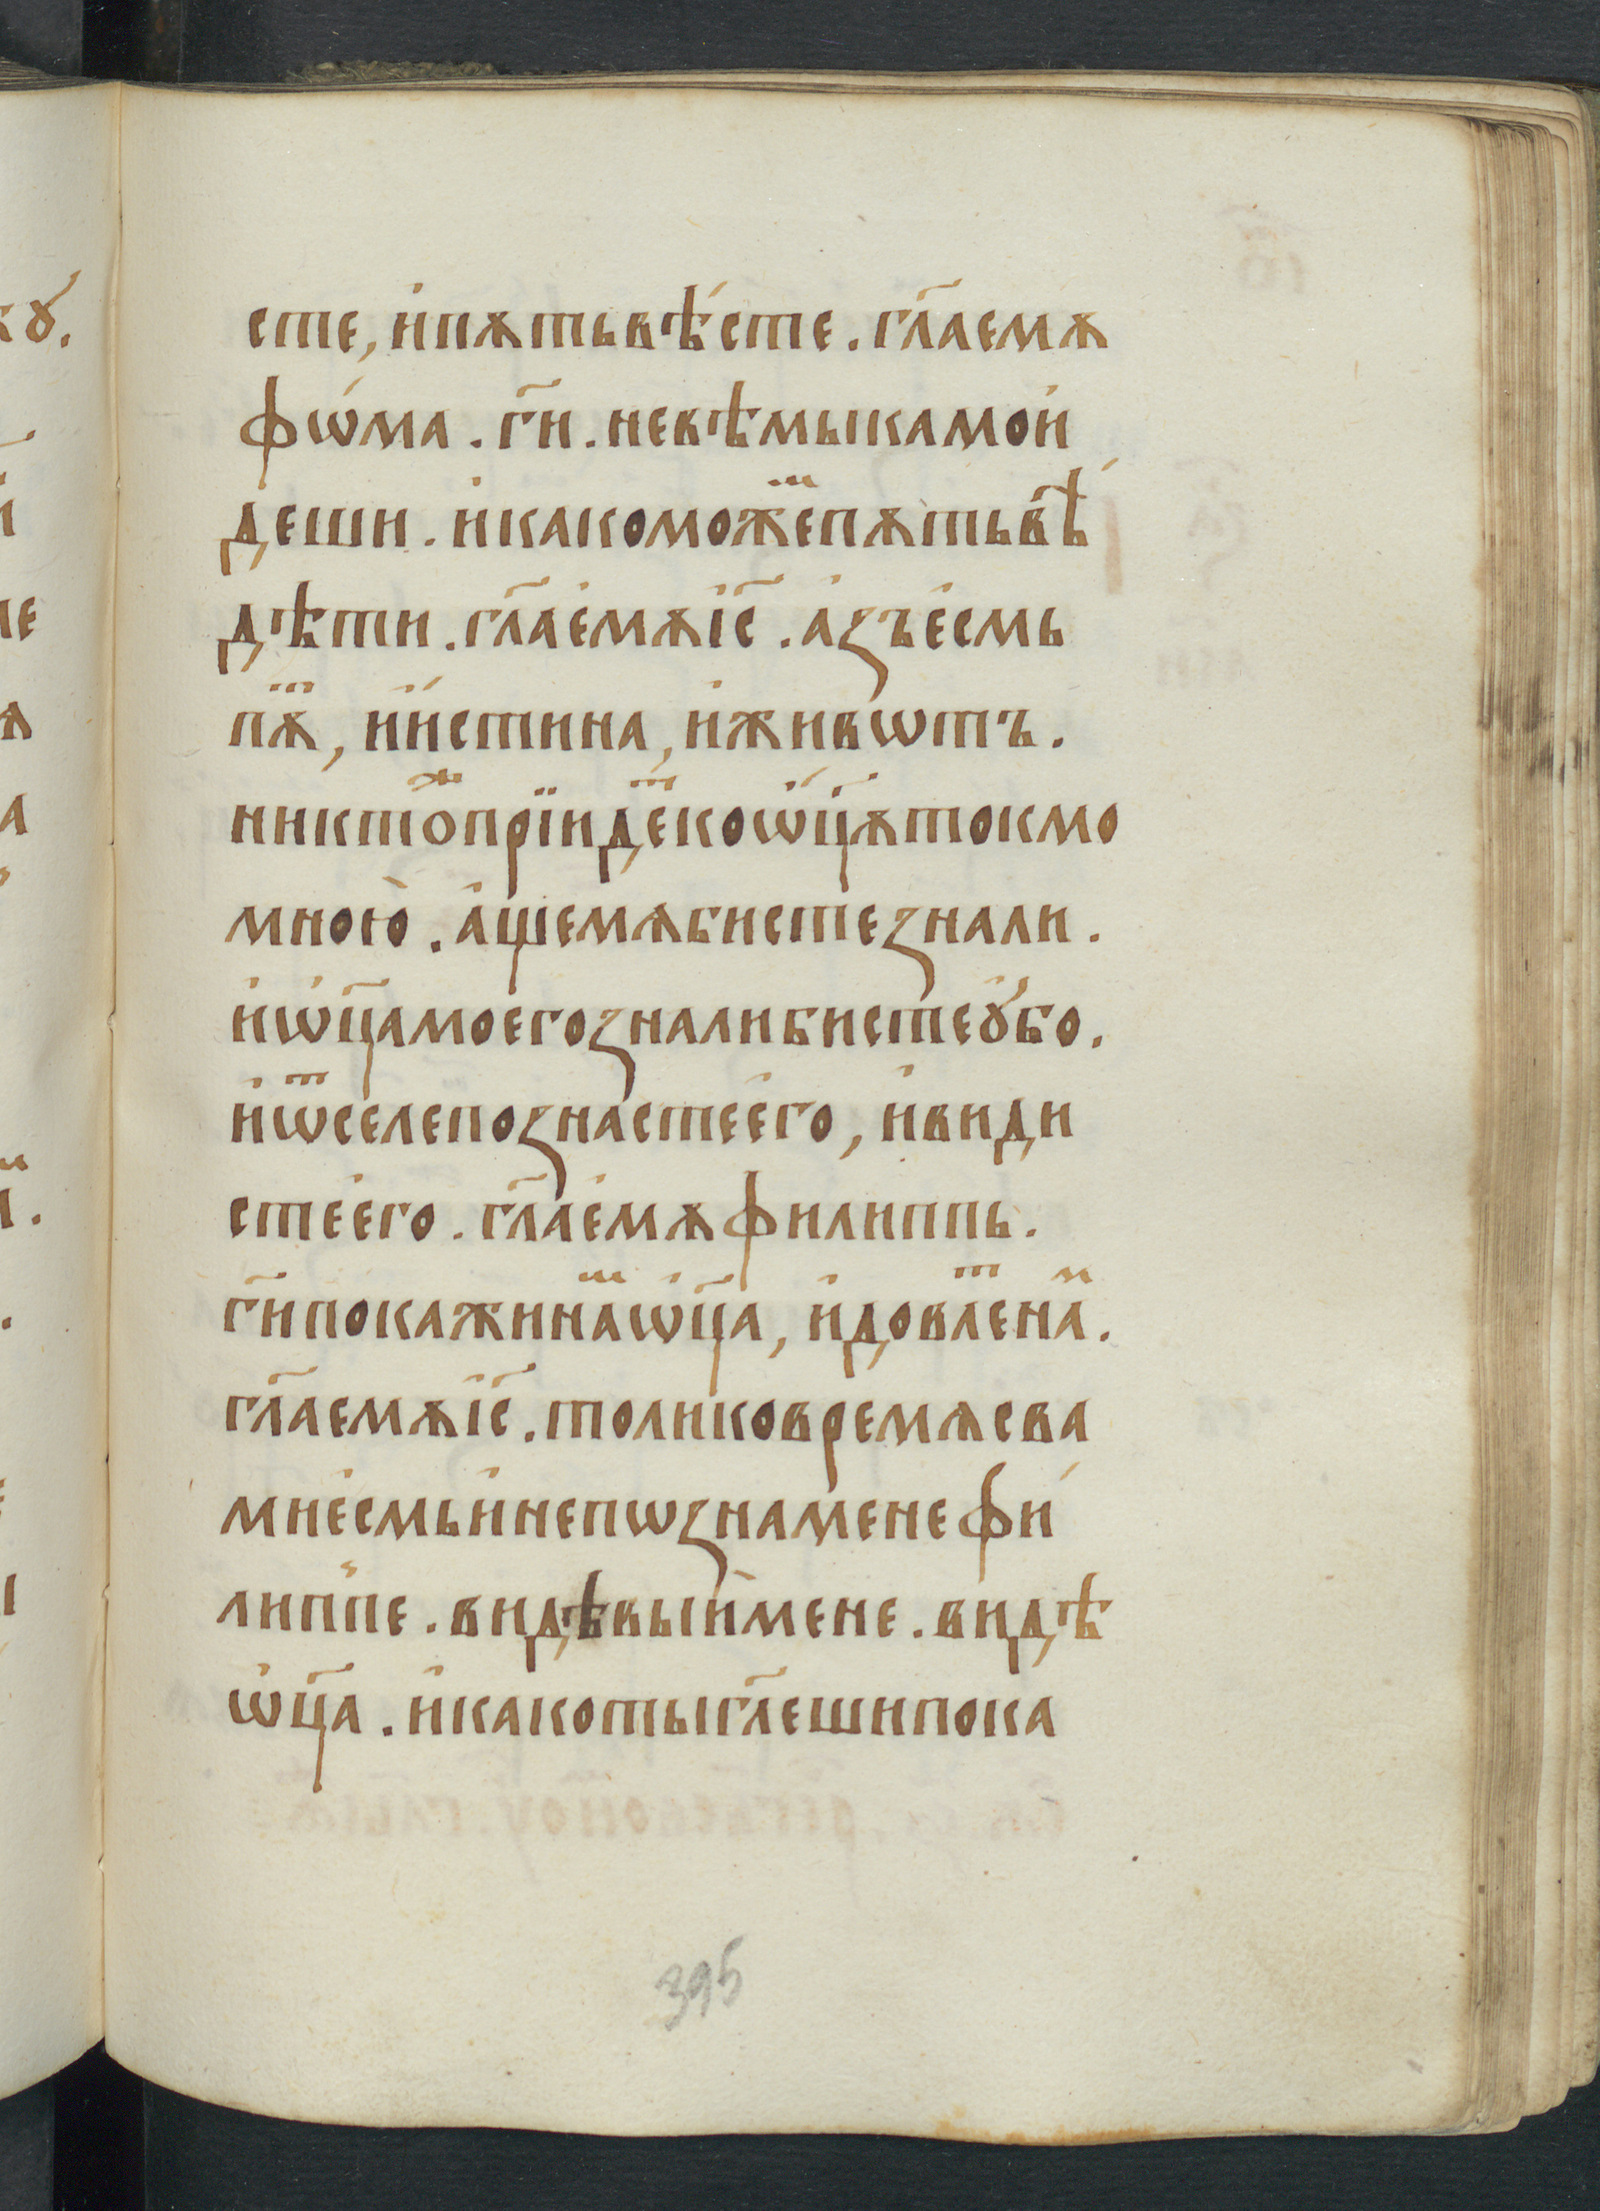 сте, и҆пѫтьвѣ́сте. гл҃аемѫ
фѡ́ма. гн҃и. невѣмыкамои҆
деши. и҆какоможеⷨ҇пѫтьвѣ́
дѣти. гл҃ае҆мѫі҆с҃. а҆зъе҆смь
пѫⷮ, и҆и҆́стина, и҆живѡтъ.
никтоⷤпрїидеⷮкоѡ҆ц҃ѫтокмо
мною̀. а҆щемѧбистезнали.
и҆ѡ҆ц҃амоегозналибистеꙋ҆́бо.
и҆ѿселепознастее҆го, и҆види
стее҆го. гл҃ае҆мѫфилиппь.
гн҃ипокажинаⷨѡ҆ц҃а, и҆довлеⷮнаⷨ.
гл҃аемѫі҆с҃. толиковремѧсва
мие҆смьи҆непѡзнамене фи́
липпе. видѣвыи̇мене. видѣ
ѡ҆ц҃а. и҆какотыгл҃ешипока
395